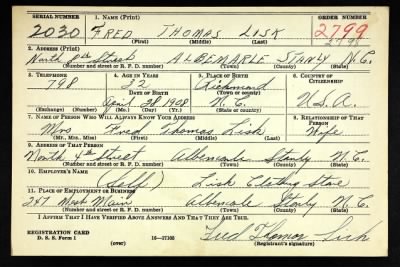 SERIAL NUMBER 1. NAME (Print) ORDER NUMBER
2030 FRED THOMAS LISK 2799
(First) (Middle) (Last)
2. ADDRESS (Print)
North Street ALBEMARLE STANLY N.C.
(Number and street or R. F. D. number) (Town) (County) (State)
3. TELEPHONE 4. AGE IN YEARS 5. PLACE OF BIRTH 6. COUNTRY OF CITIZENSHIP
798 32 Richmond
DATE OF BIRTH (Town or county)
April 28 1908 N. C. U.S.A.
(Exchange) (Number) (Mo.) (Day) (Yr.) (State or country)
7. NAME OF PERSON WHO WILL ALWAYS KNOW YOUR ADDRESS 8. RELATIONSHIP OF THAT PERSON
Mrs Fred Thomas Lisk Wife
(Mr., Mrs., Miss) (First) (Middle) (Last)
9. ADDRESS OF THAT PERSON
North Street Albemarle Stanly N.C.
(Number and street or R. F. D. number) (Town) (County) (State)
10. EMPLOYER'S NAME
(Self) Lisk Clothing Store
11. PLACE OF EMPLOYMENT OR BUSINESS
247 West Main Albemarle Stanly N.C.
(Number and street or R. F. D. number) (Town) (County) (State)
I AFFIRM THAT I HAVE VERIFIED ABOVE ANSWERS AND THAT THEY ARE TRUE.
REGISTRATION CARD
D. S. S. Form 1 (over) 16—17105 Fred Thomas Lisk
(Registrant's signature)